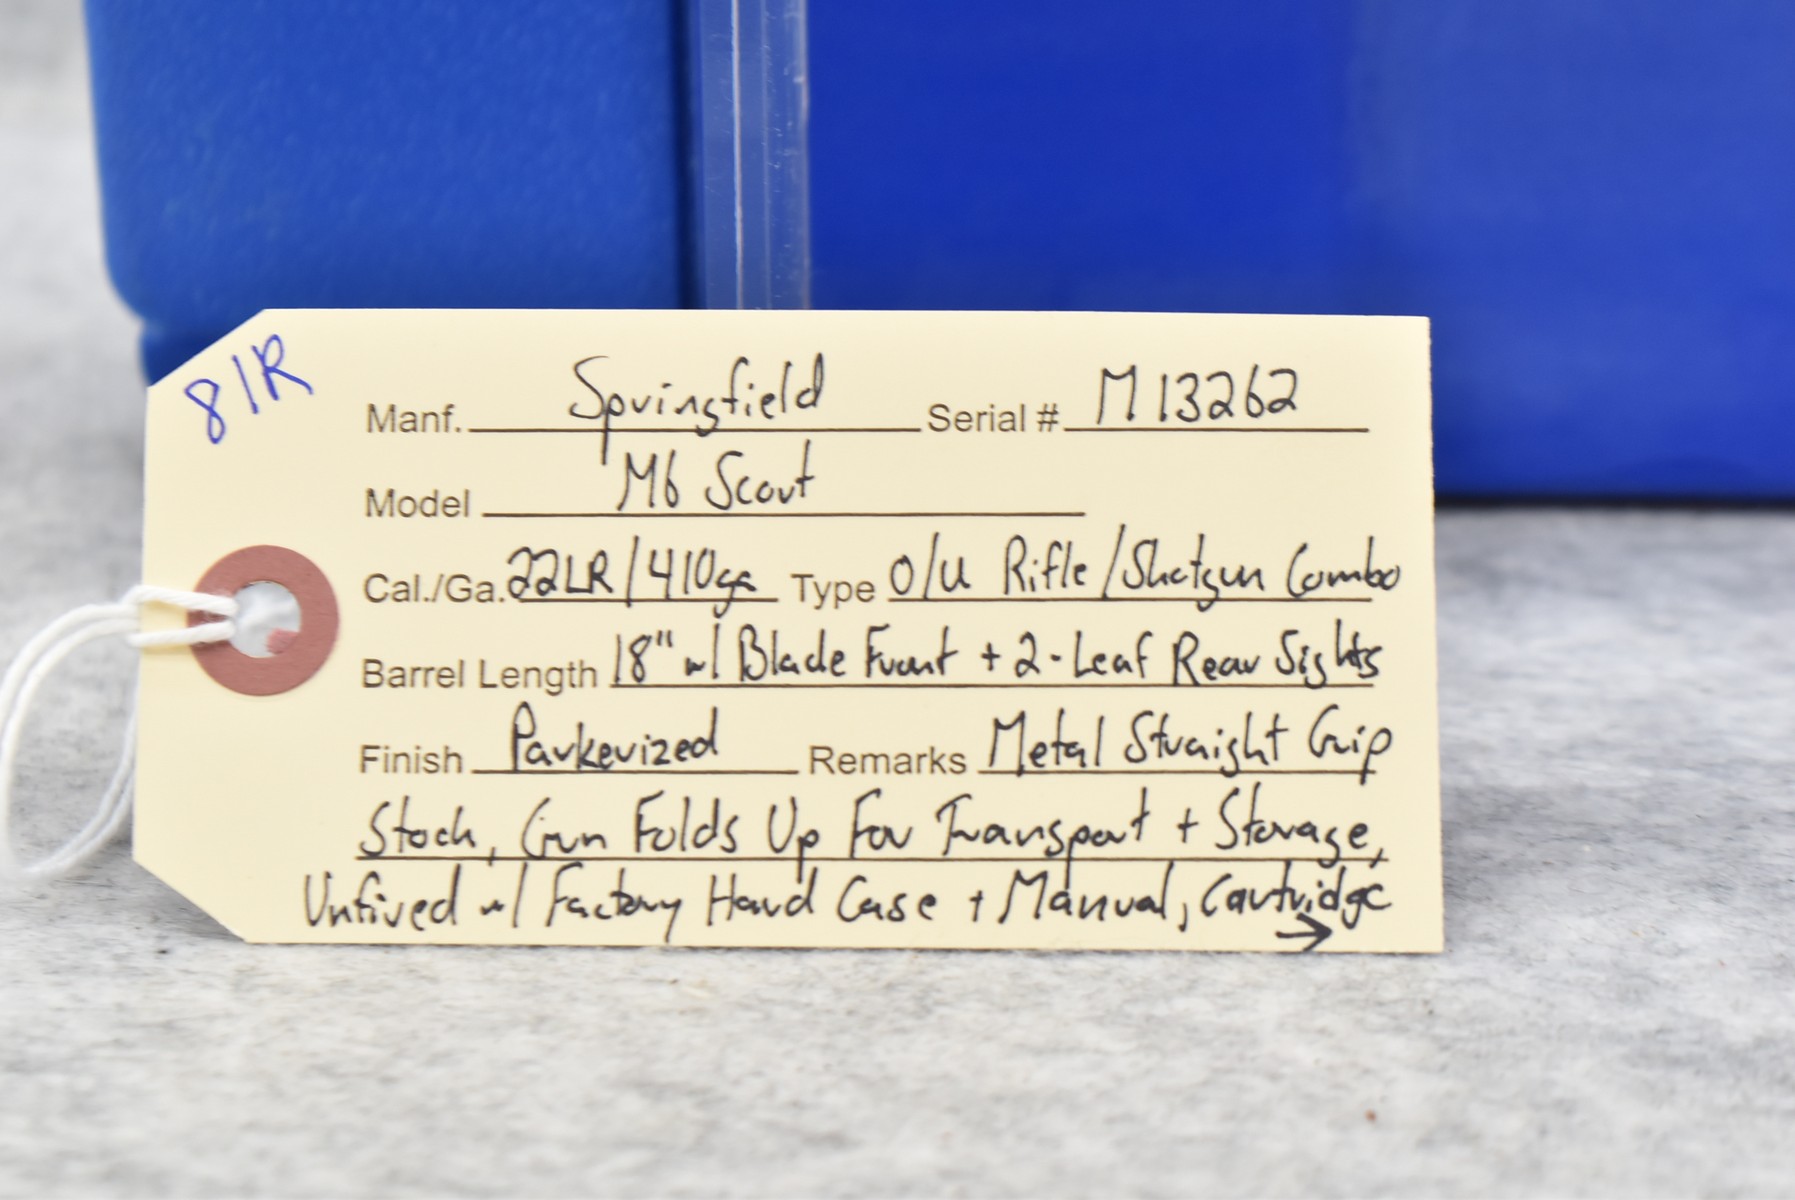 81R
Manf. Springfield Serial # M13262
Model M6 Scout
Cal./Ga. 22LR/410ga Type O/U Rifle/Shotgun Combo
Barrel Length 18" w/ Blade Front + 2-Leaf Rear Sights
Finish Parkerized Remarks Metal Straight Grip
Stock, Gun Folds Up For Transport + Storage,
Unfired w/ Factory Hard Case + Manual, Cartridge
→